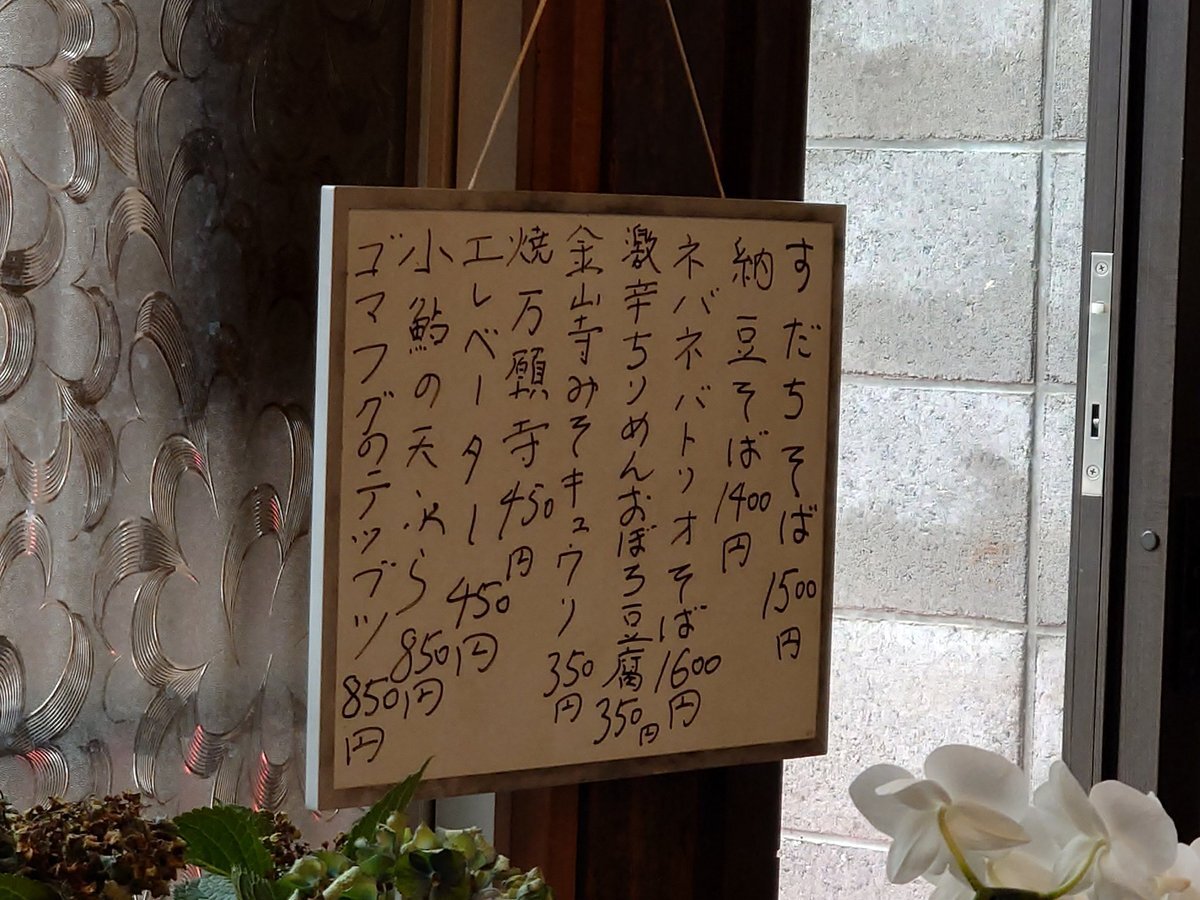 すだちそば 1500円
納豆そば 1400円
ネバネバトリオそば 1600円
激辛ちりめんおぼろ豆腐 350円
金山寺みそキュウリ 350円
焼万願寺 450円
エレベーター 450円
小鮎の天ぷら 850円
ゴマフグのテッブツ 850円